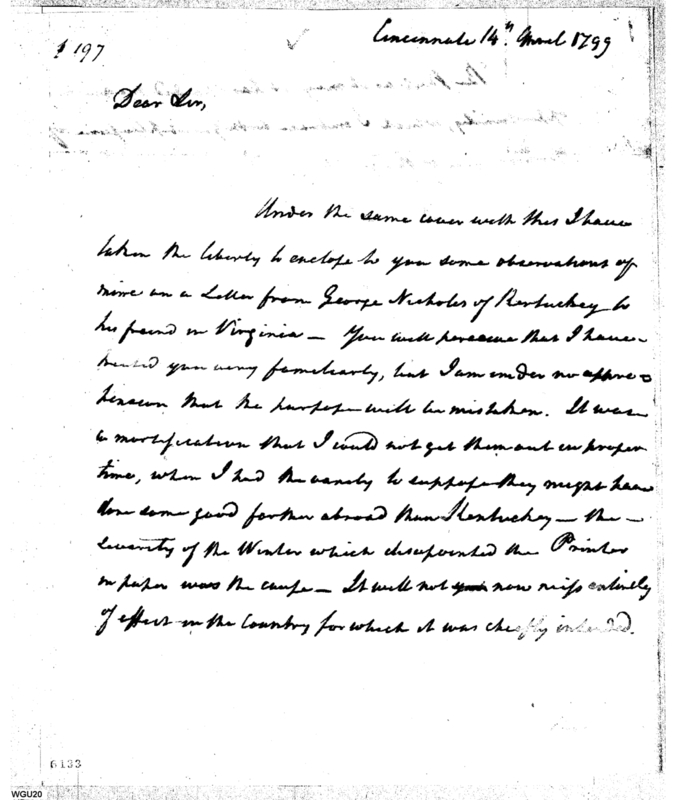 Cincinnati 14th. April 1799
p 197
Dear Sir,
Under the same cover with this I have
taken the liberty to enclose to you some observations of
mine on a Letter from George Nicholas of Kentuckey to
his freind in Virginia — You will perceive that I have
treated you very familiarly, but I am under no appre=
hension that the purpose will be mistaken. It was
a mortification that I could not get them out in proper
time, when I had the vanity to suppose they might have
done some good farther abroad than Kentuckey — the
severity of the Winter which disapointed the Printer
in paper was the cause — It will not now miss entirely
of effect in the Country for which it was chiefly intended.
6133
WGU20